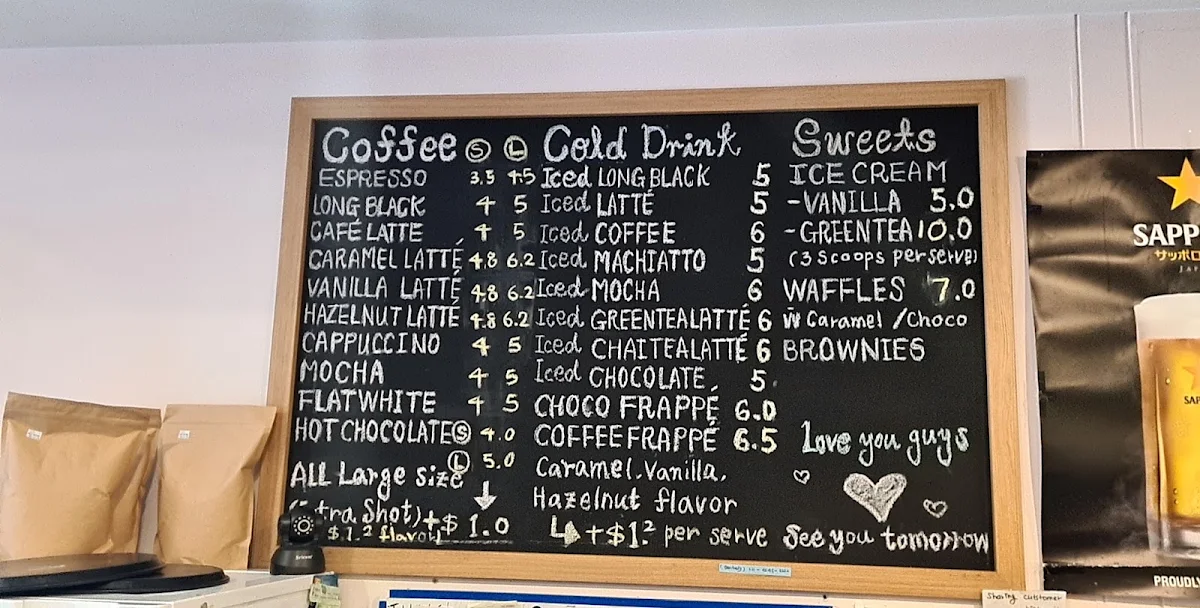 Coffee Ⓢ Ⓛ
ESPRESSO 3.5 4.5
LONG BLACK 4 5
CAFÉ LATTE 4 5
CARAMEL LATTÉ 4.8 6.2
VANILLA LATTÉ 4.8 6.2
HAZELNUT LATTÉ 4.8 6.2
CAPPUCCINO 4 5
MOCHA 4 5
FLAT WHITE 4 5
HOT CHOCOLATE Ⓢ 4.0
Ⓛ 5.0
ALL Large size
tra Shot) +$ 1.0
$1.2 flavor
Cold Drink
Iced LONG BLACK 5
Iced LATTÉ 5
Iced COFFEE 6
Iced MACHIATTO 5
Iced MOCHA 6
Iced GREENTEA LATTÉ 6
Iced CHAITEA LATTÉ 6
Iced CHOCOLATE 5
CHOCO FRAPPÉ 6.0
COFFEE FRAPPÉ 6.5
Caramel. Vanilla.
Hazelnut flavor
+$1.2 per serve
Sweets
ICE CREAM
-VANILLA 5.0
-GREENTEA 10.0
(3 Scoops per serve)
WAFFLES 7.0
W Caramel / Choco
BROWNIES
Love you guys
See you tomorrow
SAPP
サッポロ
SAP
PROUDLY